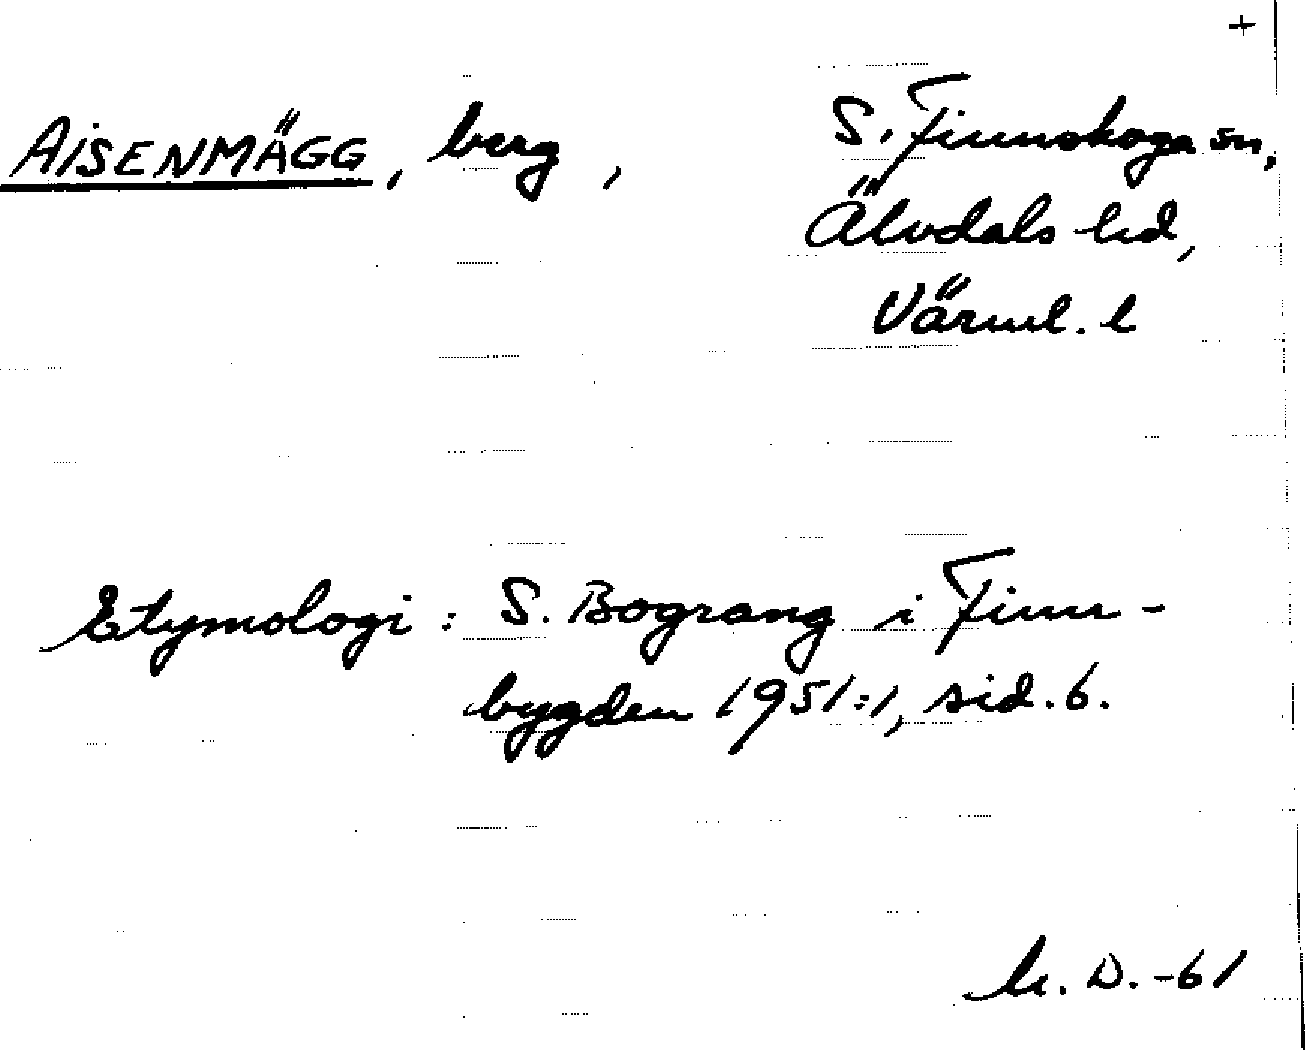 +
AISENMÄGG, berg, S. Finnskoga sn,
Älvdals hd,
Värml. l
Etymologi: S. Bograng i Finn-
bygden 1951:1, sid. 6.
D. -61